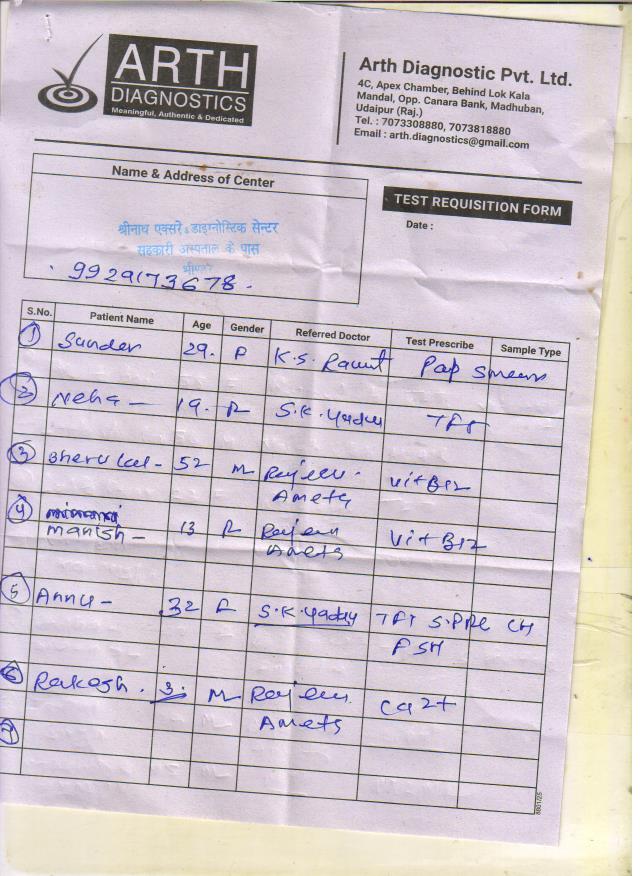 ARTH
DIAGNOSTICS
Meaningful, Authentic & Dedicated
Arth Diagnostic Pvt. Ltd.
4C, Apex Chamber, Behind Lok Kala
Mandal, Opp. Canara Bank, Madhuban,
Udaipur (Raj.)
Tel. : 7073308880, 7073818880
Email : arth.diagnostics@gmail.com
Name & Address of Center
श्रीनाथ एक्सरे & डाइग्नोस्टिक सेन्टर
सहकारी अस्पताल के पास
9929173678.
TEST REQUISITION FORM
Date :
S.No. Patient Name Age Gender Referred Doctor Test Prescribe Sample Type
1 Sunder 29. F K.S. Raut Pap smear
2 Neha - 19. F S.K. Yadav TFT
3 Bherulal - 52 M Rajeev Vit B12
Ameta
4 Manish - 13 F Rajeev Vit B12
Ameta
5 Annu - 32 F S.K. Yadav TFT S.PRL LH
FSH
6 Rakesh. 3. M Rajeev Ca2+
Ameta
7
8801/25